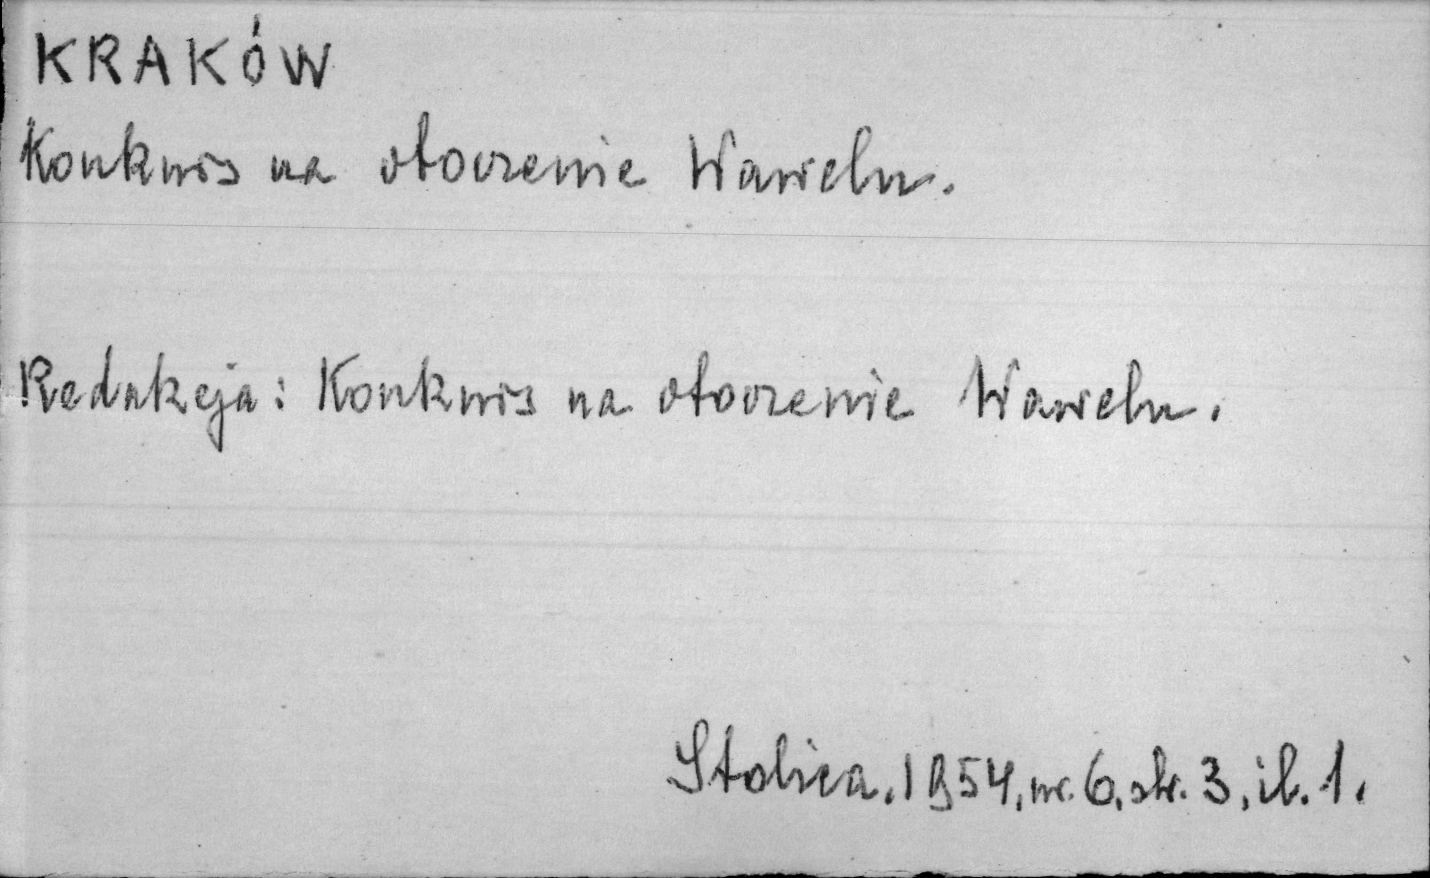 KRAKÓW
Konkurs na otoczenie Wawelu.
Redakcja: Konkurs na otoczenie Wawelu.
Stolica, 1954, nr. 6, str. 3, il. 1.